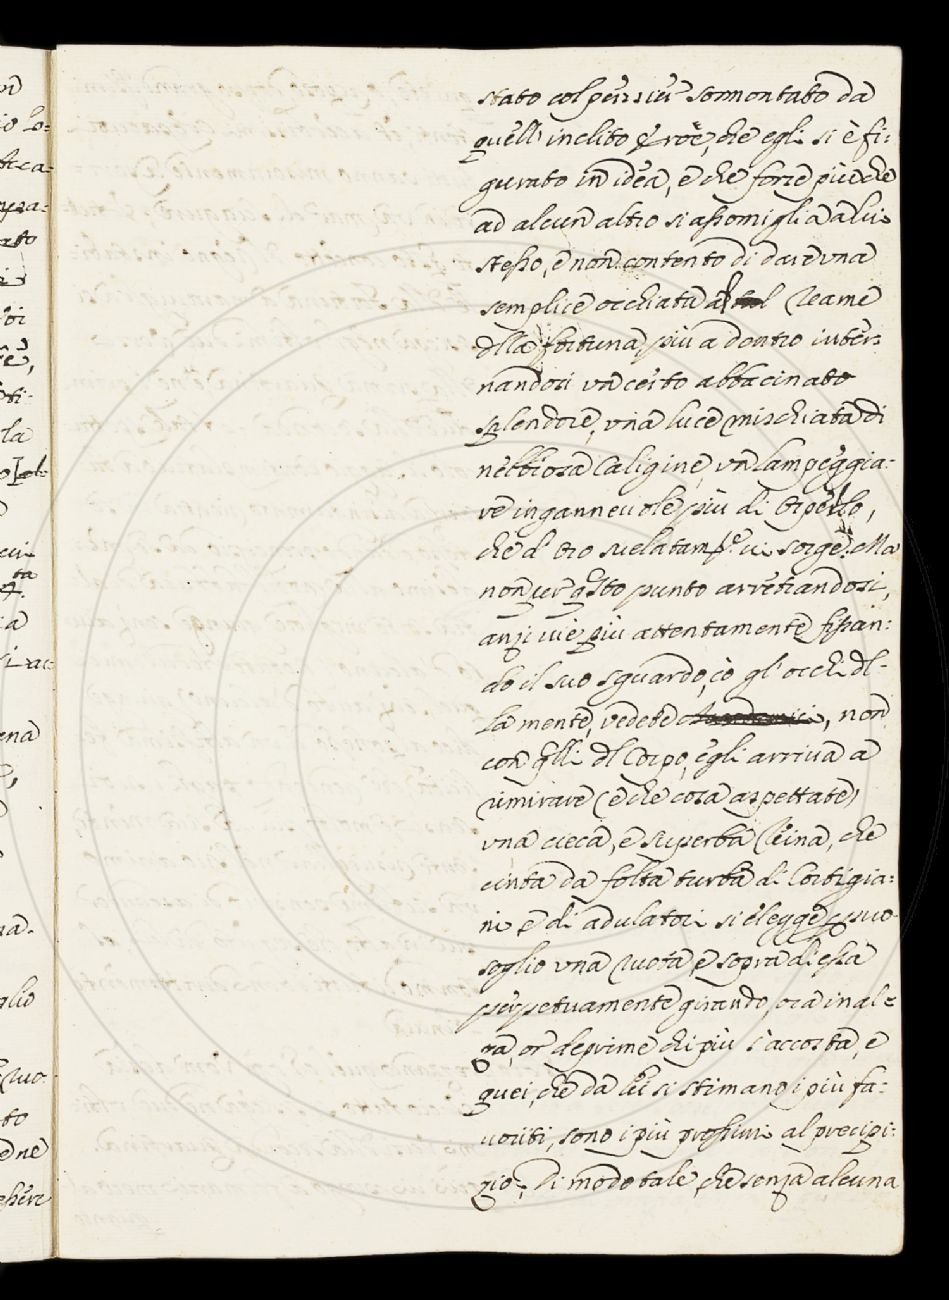 stato col pensier sormontato da
quell'inclito Eroe, che egli si è fi:
gurato in idea, e che forse più che
ad alcun altro si assomiglia a lui
stesso, e non contento di dare una
semplice occhiata al Reame
dlla fortuna, più a dentro inter:
nandosi un certo abbacinato
splendore, una luce mischiata di
nebbiosa Caligine, un lampeggia:
re ingannevole più di Orpello,
che d'Oro svelatam.e vi scorge. Ma
non per q.sto punto arrestandosi,
anzi vie più attentamente fissan:
do il suo sguardo, cò gl'occhi dl-
la mente, vedete, non
con q.lli dl Corpo, egli arriva a
rimirare (e che cosa aspettate)
una cieca, e superba Reina, che
cinta da folta turba di Cortigia:
ni e di adulatori si elegge p suo
soglio una Ruota e sopra di essa
perpetuamente girando, ora inal:
za, or deprime chi più s'accosta, e
quei, che da lei si stimano i più fa:
voriti, sono i più prossimi al precipi:
zio; Di modo tale, che senza alcuna